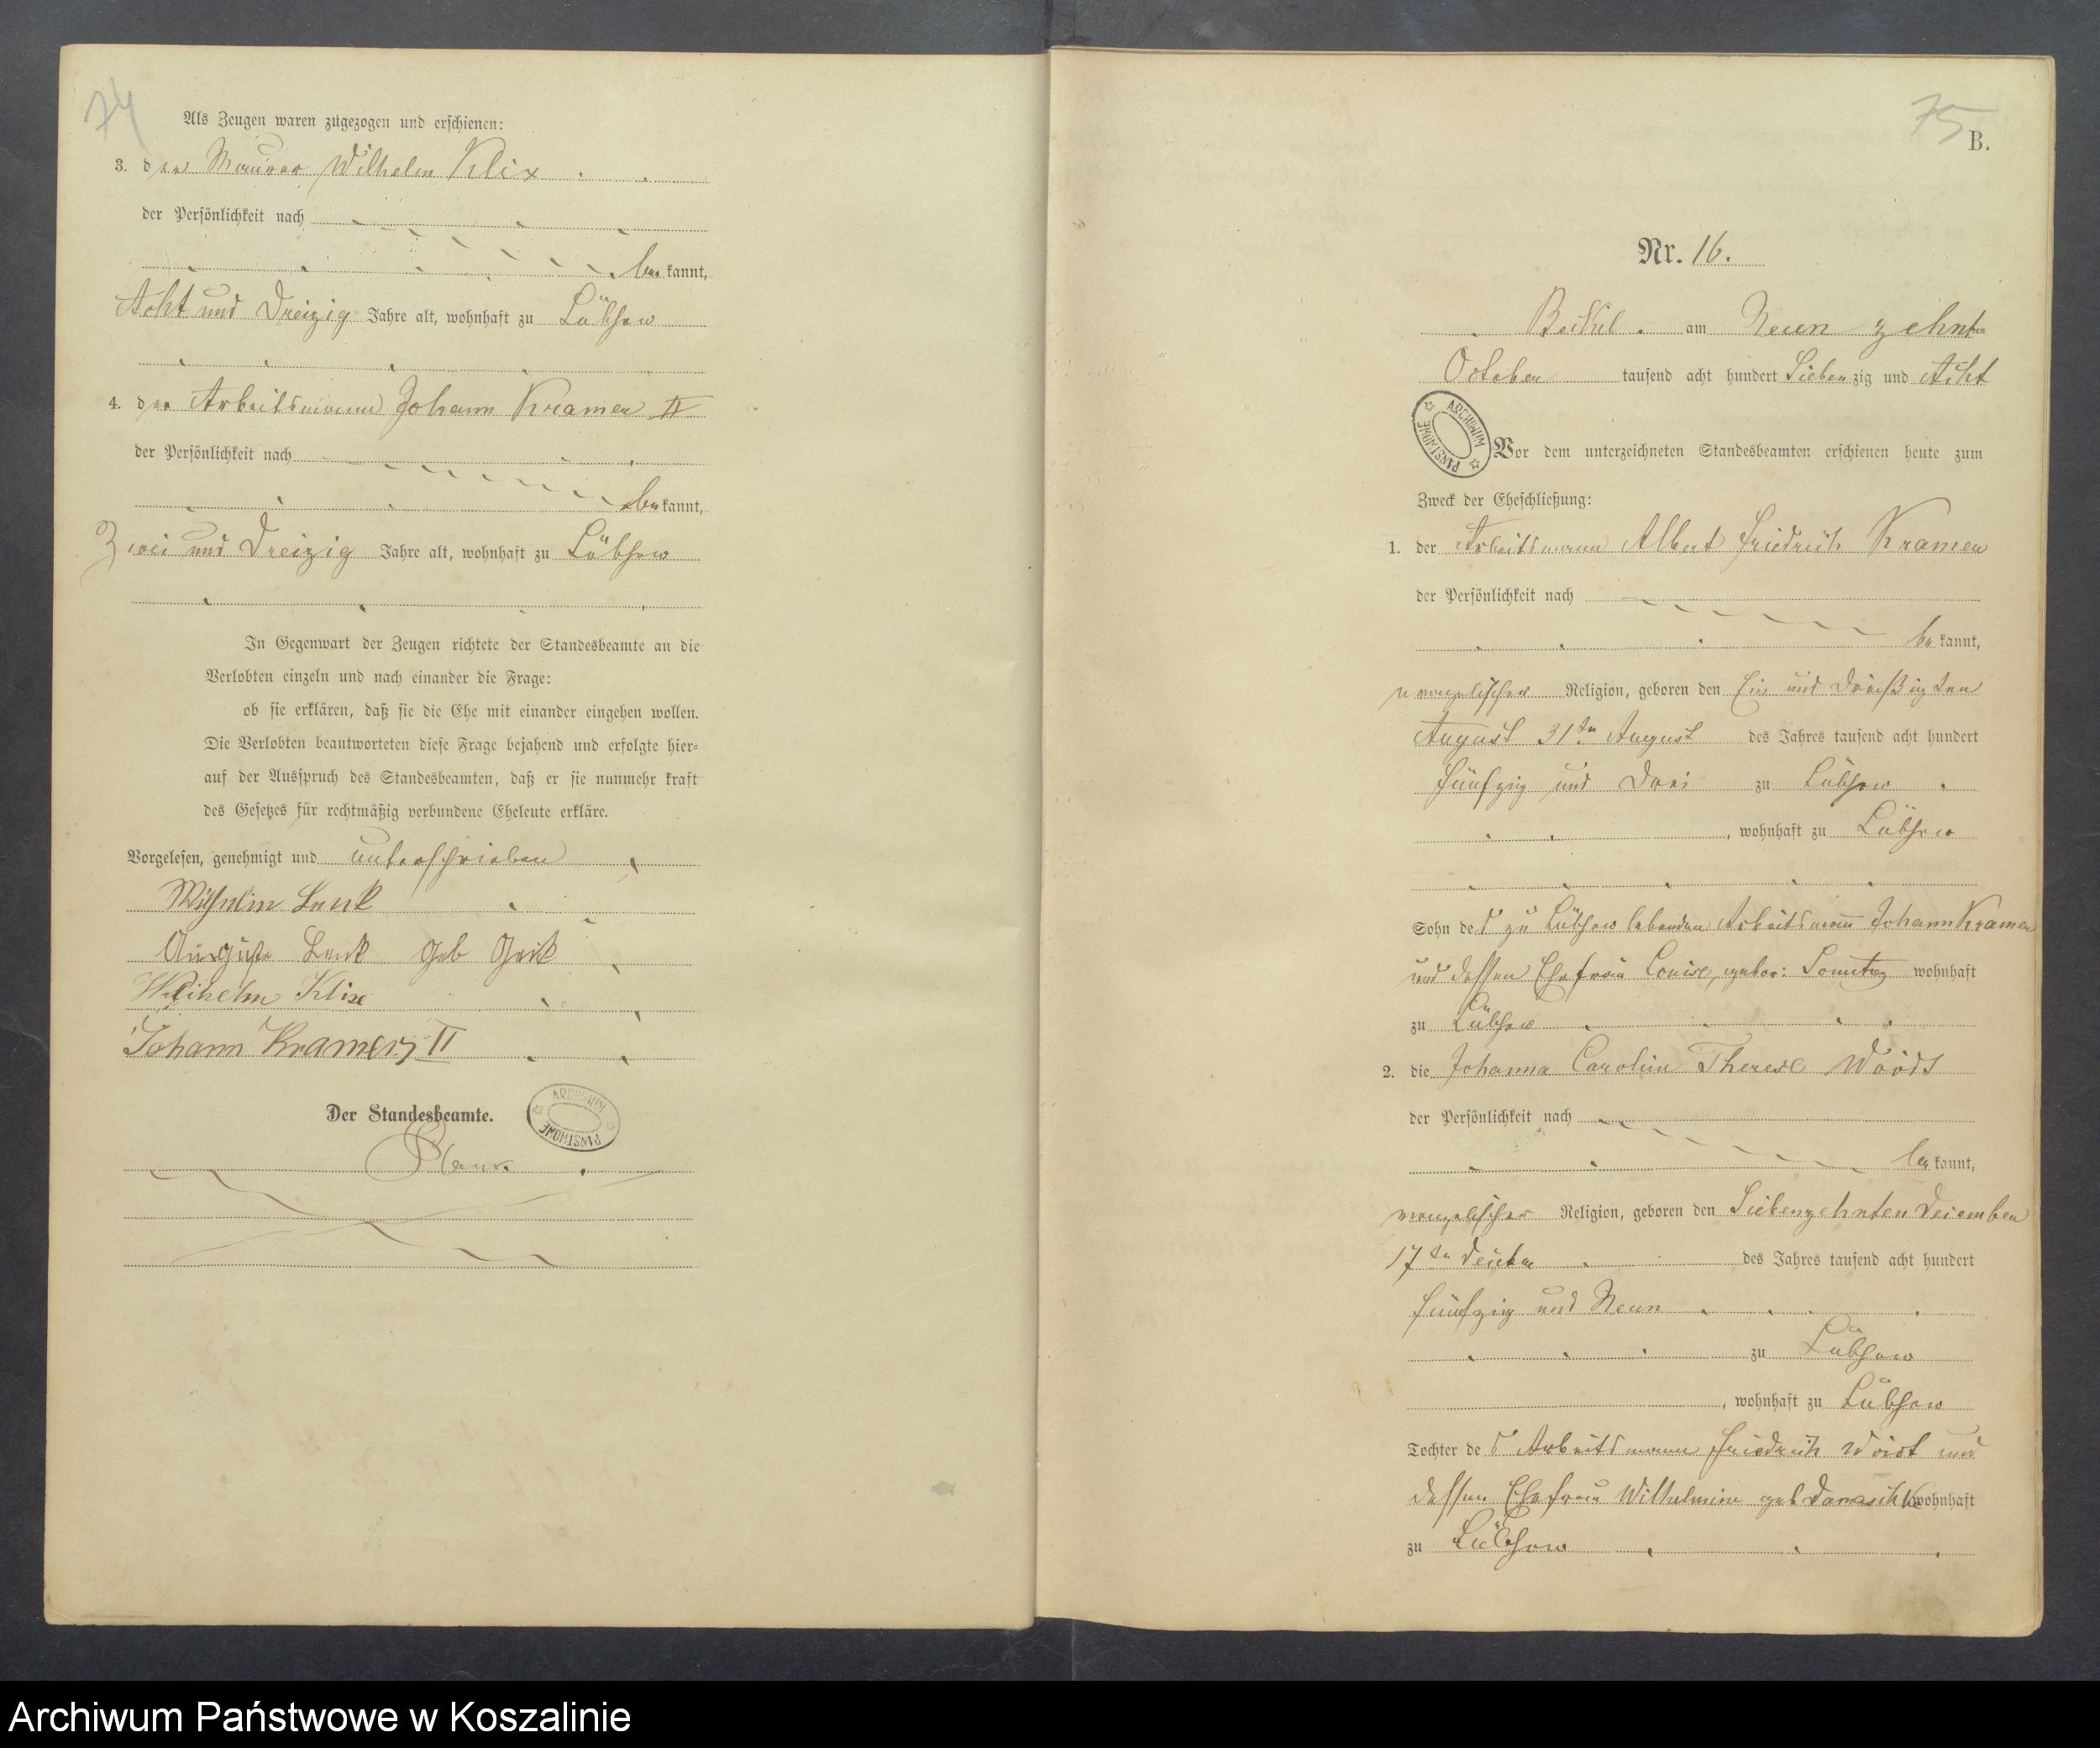 74
Als Zeugen waren zugezogen und erschienen:
3. der Maurer Wilhelm Klix
der Persönlichkeit nach
be kannt,
Acht und Dreizig Jahre alt, wohnhaft zu Lübhow
4. der Arbeitsmann Johann Kramer II
der Persönlichkeit nach
be kannt,
Zwei und Dreizig Jahre alt, wohnhaft zu Lübhow
In Gegenwart der Zeugen richtete der Standesbeamte an die
Verlobten einzeln und nach einander die Frage:
ob sie erklären, daß sie die Ehe mit einander eingehen wollen.
Die Verlobten beantworteten diese Frage bejahend und erfolgte hier=
auf der Ausspruch des Standesbeamten, daß er sie nunmehr kraft
des Gesetzes für rechtmäßig verbundene Eheleute erkläre.
Vorgelesen, genehmigt und unterschrieben
Wilhelm Lenk
Auguste Lenk geb
Wilhelm Klix
Johann Kramer II
Der Standesbeamte.
ARCHIWUM PAŃSTWOWE
75
B.
Nr. 16.
am Neun zehnten
October tausend acht hundert Siebenzig und Acht
ARCHIWUM PAŃSTWOWE
Vor dem unterzeichneten Standesbeamten erschienen heute zum
Zweck der Eheschließung:
1. der Arbeitsmann Albert Friedrich Kramer
der Persönlichkeit nach
be kannt,
evangelischer Religion, geboren den Ein und Dreißigsten
August 31ten August des Jahres tausend acht hundert
fünfzig und Drei zu Lübhow
, wohnhaft zu Lübhow
Sohn des zu Lübhow lebenden Arbeitsmann Johann Kramer
und dessen Ehefrau Louise, gebor: Sonntag wohnhaft
zu Lübhow
2. die Johanna Carolin Therese
der Persönlichkeit nach
be kannt,
evangelischer Religion, geboren den Siebenzehnten Dezember
17ten des Jahres tausend acht hundert
fünfzig und Neun
zu Lübhow
, wohnhaft zu Lübhow
Tochter des Arbeitsmann Friedrich und
dessen Ehefrau Wilhelmine geb wohnhaft
zu Lübhow
Archiwum Państwowe w Koszalinie